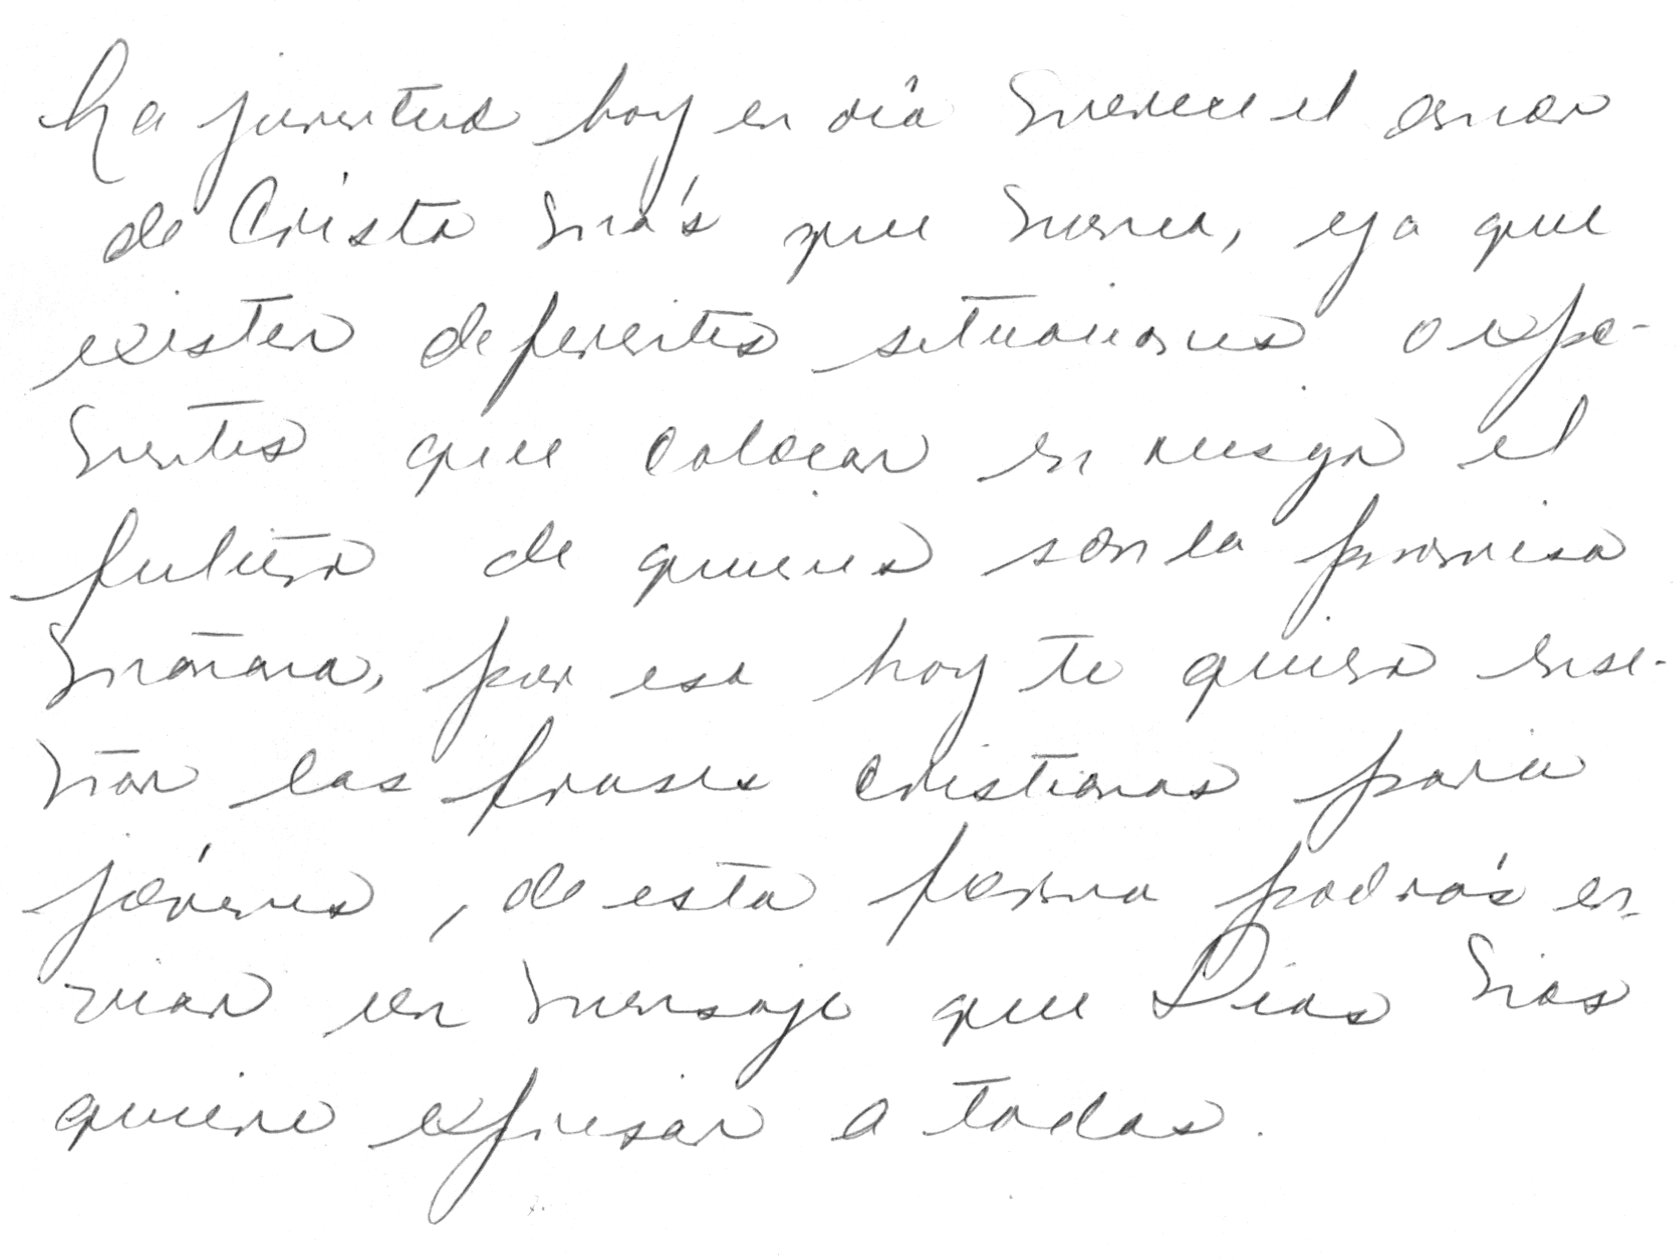 La juventud hoy en día merece el amor
de Cristo más que nunca, ya que
existen diferentes situaciones o expo-
nentes que colocan en riesgo el
futuro de quienes son la promesa
mañana, por eso hoy te quiero ense-
ñar las frases cristianas para
jóvenes, de esta forma podrás en-
viar un mensaje que Dios nos
quiere expresar a todos.